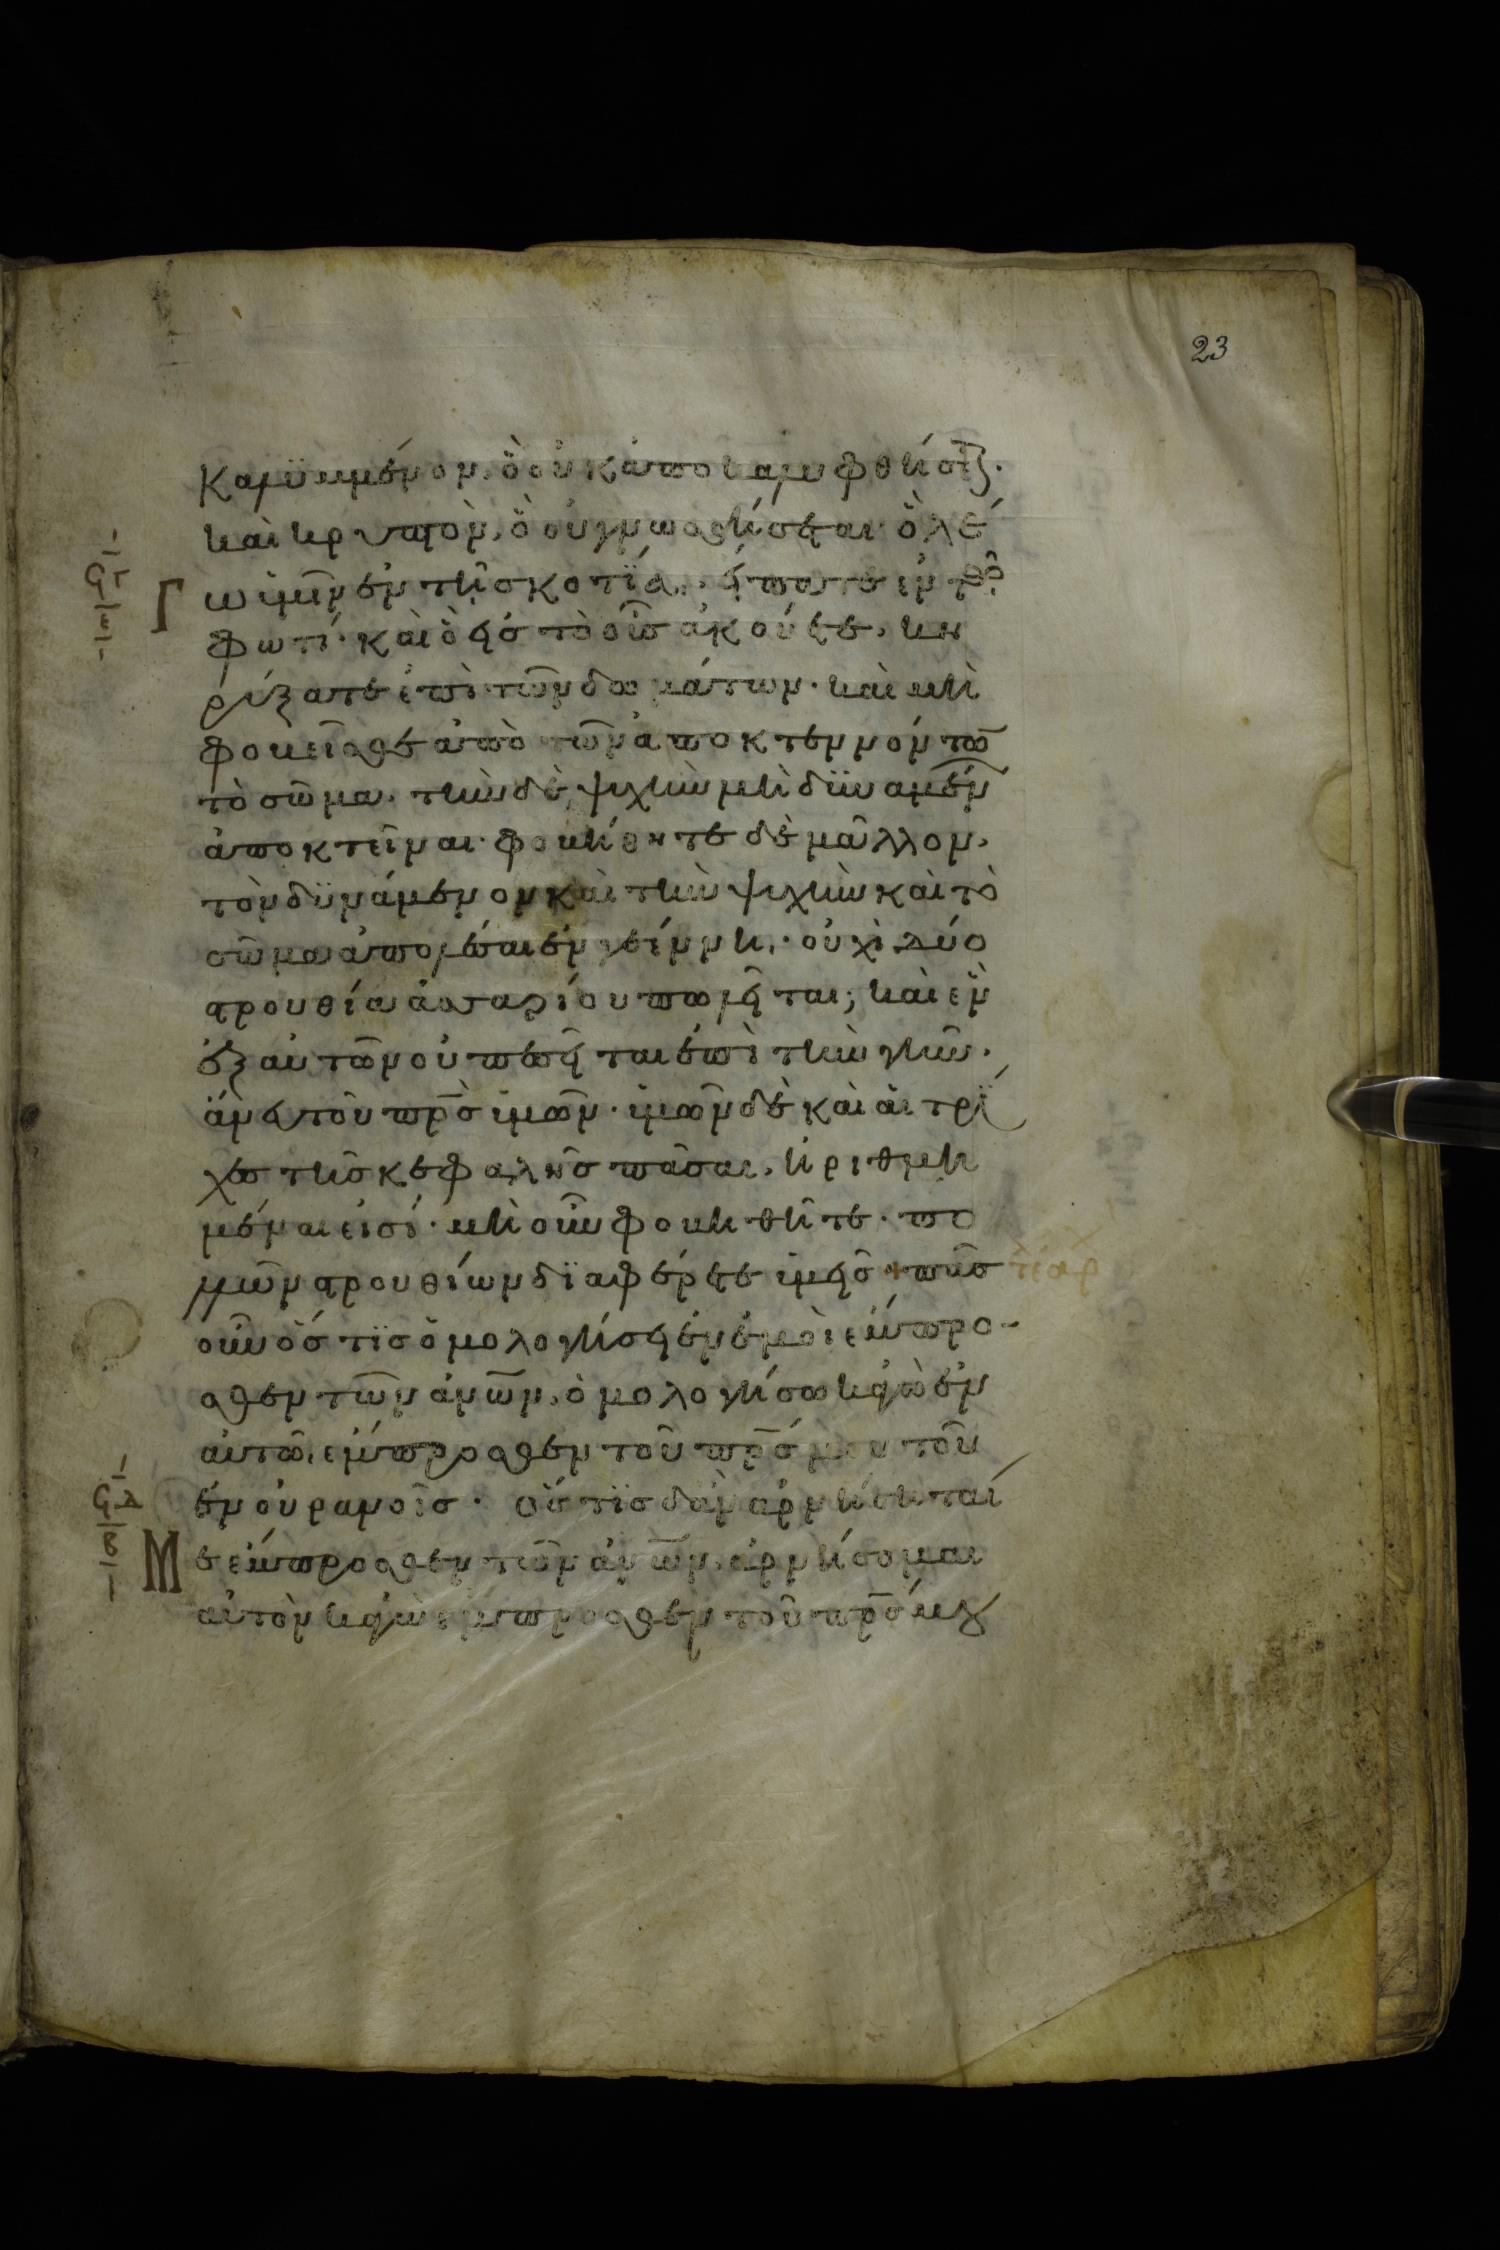 23
καλυμμένον, ὃ οὐκ ἀποκαλυφθήσεται.
καὶ κρυπτὸν, ὃ οὐ γνωσθήσεται· ὃ λέ
γω ὑμῖν ἐν τῆ σκοτΐα, εἴπατε ἐν τῶ
φωτί· καὶ ὃ εἰς τὸ οὖς ἀκούετε, κη
ρύξατε ἐπὶ τῶν δωμάτων· καὶ μὴ
φοβεῖσθε ἀπὸ τῶν ἀποκτεννόντων
τὸ σῶμα. τὴν δὲ ψυχὴν μὴ δϋναμένων
ἀποκτεῖναι· φοβήθητε δὲ μᾶλλον,
τὸν δϋνάμενον καὶ τὴν ψυχὴν καὶ τὸ
σῶμα ἀπολέσαι ἐν γεέννη· οὐχὶ δύο
στρουθία ἀσσαρίου πωλεῖται; καὶ ἓν
ἐξ αὐτῶν οὐ πεσεῖται ἐπὶ τὴν γῆν.
ἄνευ τοῦ πρς ὑμῶν· ὑμῶν δὲ καὶ αἱ τρί
χες τῆς κεφαλῆς πᾶσαι, ἠριθμη
μέναι εἰσί· μὴ οὖν φοβηθῆτε· πο
λλῶν στρουθίων δϊαφέρετε ὑμεῖς + πᾶς
οὖν ὅς τϊς ὁμολογήσει ἐν ἐμοὶ ἔμπρο-
σθεν τῶν ἀνων, ὁμολογήσω κἀγὼ ἐν
αὐτῶ, ἔμπροσθεν τοῦ πρς μου τοῦ
ἐν οὐρανοῖς· ὅς τϊς δ' ἂν ἀρνήσηταί
με ἔμπροσθεν τῶν ἀνων, ἀρνήσομαι
αὐτὸν κἀγὼ ἔμπροσθεν τοῦ πρς μου